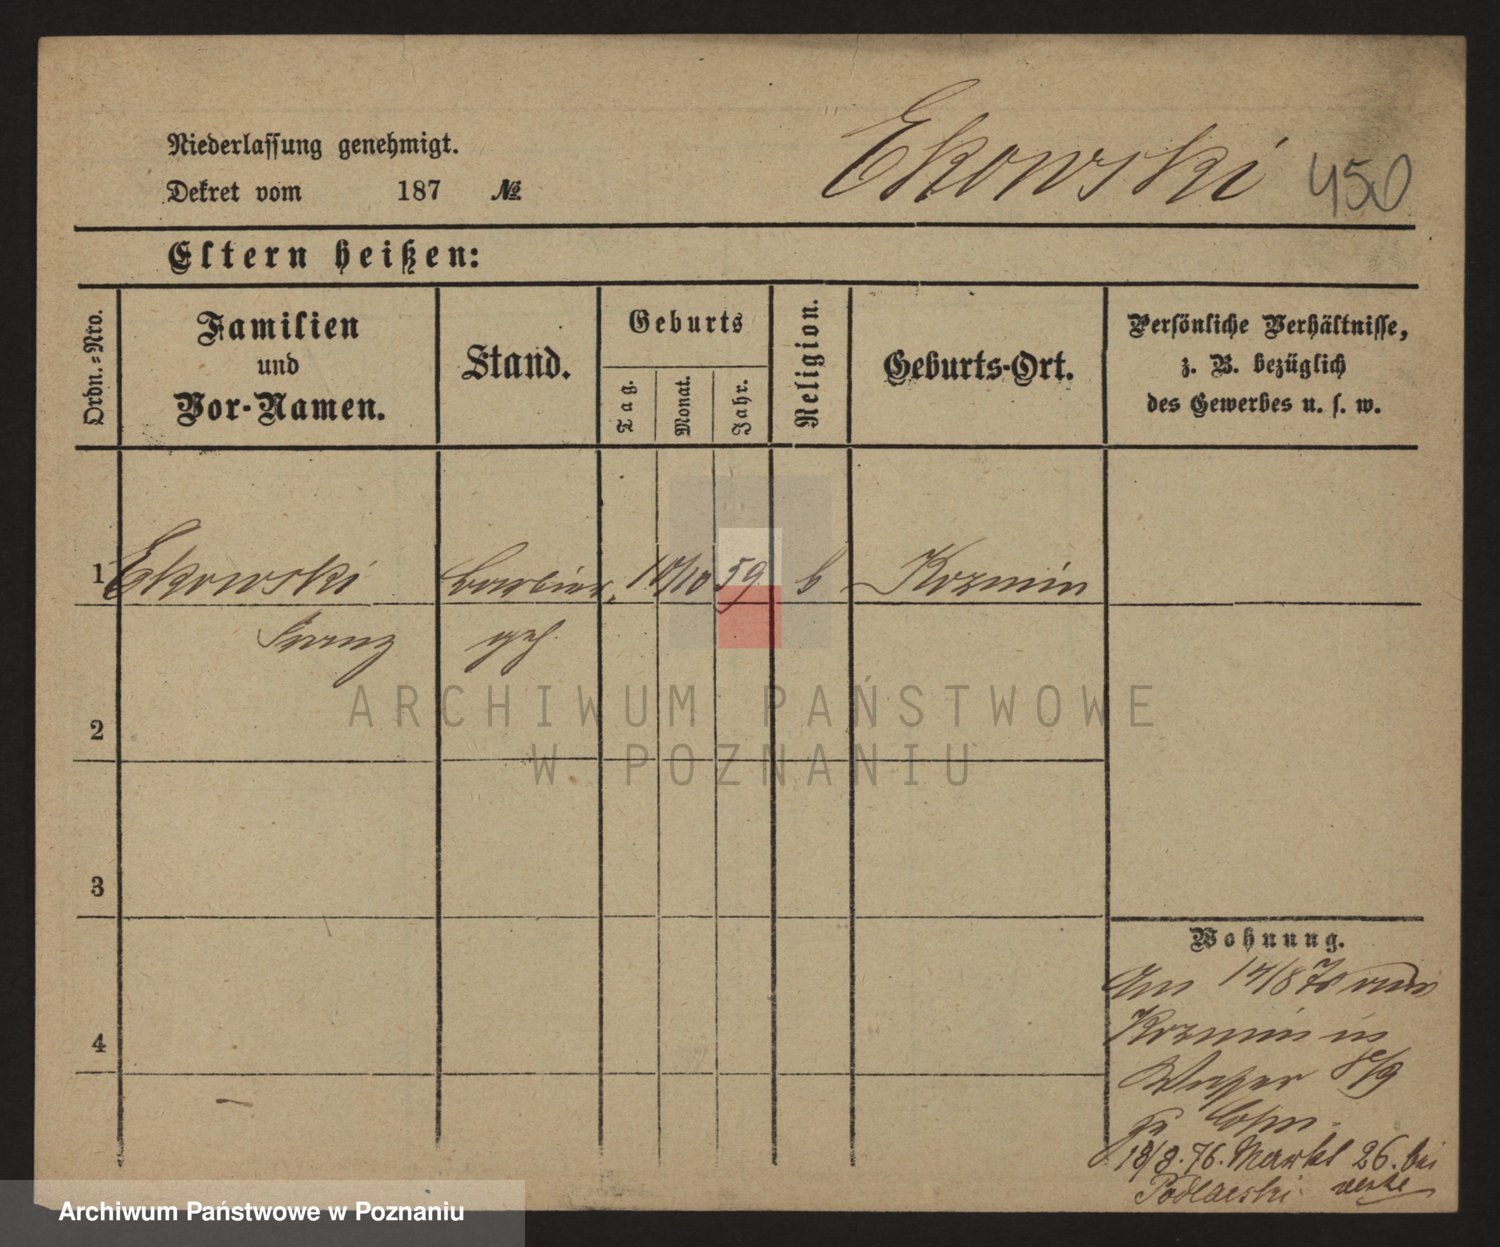 Niederlassung genehmigt.
Dekret vom 187 №
Ekowski 450
Eltern heißen:
Ordn.=Nro.
Familien
und
Vor-Namen.
Stand.
Geburts
Tag.
Monat.
Jahr.
Religion.
Geburts-Ort.
Persönliche Verhältnisse,
z. B. bezüglich
des Gewerbes u. s. w.
1 Ekowski Barbier 59 Kozmin
Franz geh
2
3
4
Wohnung.
Am
Kozmin in
8/9
18/8. 76. Markt 26. bei
Podlaeski
ARCHIWUM PAŃSTWOWE
W POZNANIU
Archiwum Państwowe w Poznaniu